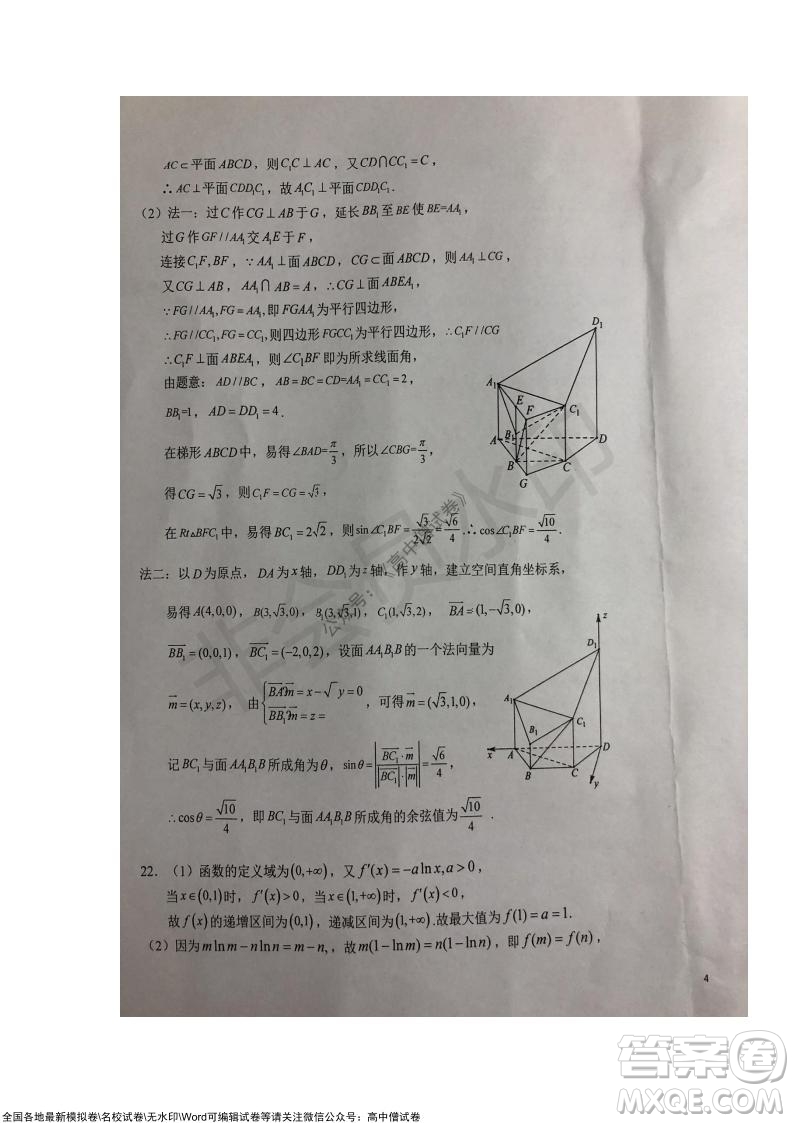 AC⊂平面ABCD，则C₁C⊥AC，又CD∩CC₁=C，
∴AC⊥平面CDD₁C₁，故A₁C₁⊥平面CDD₁C₁.
（2）法一：过C作CG⊥AB于G，延长BB₁至BE使BE=AA₁，
过G作GF//AA₁交A₁E于F，
连接C₁F,BF，∵AA₁⊥面ABCD，CG⊂面ABCD，则AA₁⊥CG，
又CG⊥AB，AA₁∩AB=A，∴CG⊥面ABEA₁，
∵FG//AA₁,FG=AA₁,即FGAA₁为平行四边形，
∴FG//CC₁,FG=CC₁,则四边形FGCC₁为平行四边形，∴C₁F//CG
∴C₁F⊥面ABEA₁，则∠C₁BF即为所求线面角，
由题意：AD//BC，AB=BC=CD=AA₁=CC₁=2，
BB₁=1，AD=DD₁=4.
在梯形ABCD中，易得∠BAD=π/3，所以∠CBG=π/3，
得CG=√3，则C₁F=CG=√3，
在Rt△BFC₁中，易得BC₁=2√2，则sin∠C₁BF=√3/2√2=√6/4.∴cos∠C₁BF=√10/4.
D₁
A₁
E
F
C₁
B₁
A
D
B
C
G
法二：以D为原点，DA为x轴，DD₁为z轴，作y轴，建立空间直角坐标系，
易得A(4,0,0)，B(3,√3,0)，B₁(3,√3,1)，C₁(1,√3,2)，BA=(1,-√3,0)，
BB₁=(0,0,1)，BC₁=(-2,0,2)，设面AA₁B₁B的一个法向量为
m=(x,y,z)，由{BA?m=x-√ y=0
BB₁?m=z=
，可得m=(√3,1,0)，
记BC₁与面AA₁B₁B所成角为θ，sinθ=|BC₁·m/|BC₁|·|m||=√6/4，
∴cosθ=√10/4，即BC₁与面AA₁B₁B所成角的余弦值为√10/4.
z
D₁
A₁
B₁
C₁
x
A
D
B
C
y
22．（1）函数的定义域为(0,+∞)，又f′(x)=-aln x,a>0，
当x∈(0,1)时，f′(x)>0，当x∈(1,+∞)时，f′(x)<0，
故f(x)的递增区间为(0,1)，递减区间为(1,+∞).故最大值为f(1)=a=1.
（2）因为mln m-nln n=m-n，故m(1-ln m)=n(1-ln n)，即f(m)=f(n)，
4
非会员水印
公众号：《高中僧试卷》
答案卷
MXQE.COM
全国各地最新模拟卷\名校试卷\无水印\Word可编辑试卷等请关注微信公众号：高中僧试卷